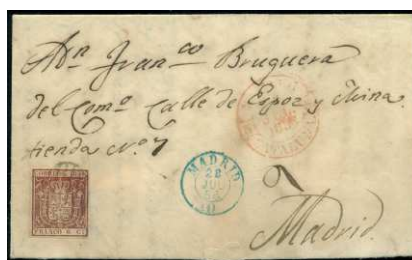 A Dn Franco Bruguera
del Como Calle de Espoz y Mina
tienda No 7
MADRID
28
JUL
(1)
Madrid.